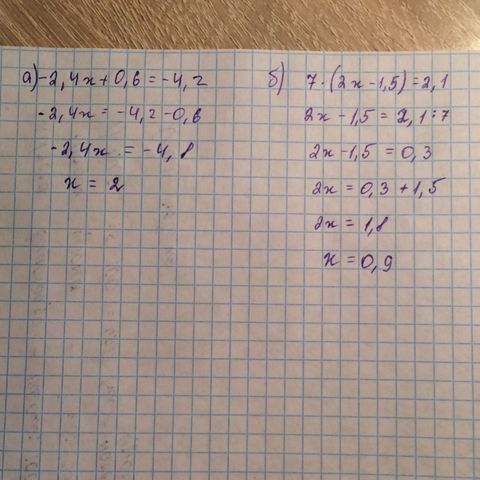 а) -2,4x + 0,6 = -4,2
-2,4x = -4,2 - 0,6
-2,4x = -4,8
x = 2
б) 7 · (2x - 1,5) = 2,1
2x - 1,5 = 2,1 : 7
2x - 1,5 = 0,3
2x = 0,3 + 1,5
2x = 1,8
x = 0,9